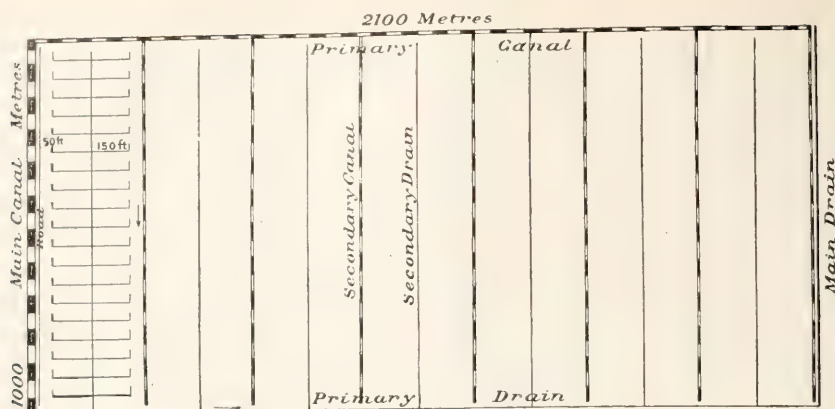 2100 Metres
Primary Canal
Main Canal
1000 Metres
Road
50ft
150ft
Secondary Canal
Secondary Drain
Main Drain
Primary Drain